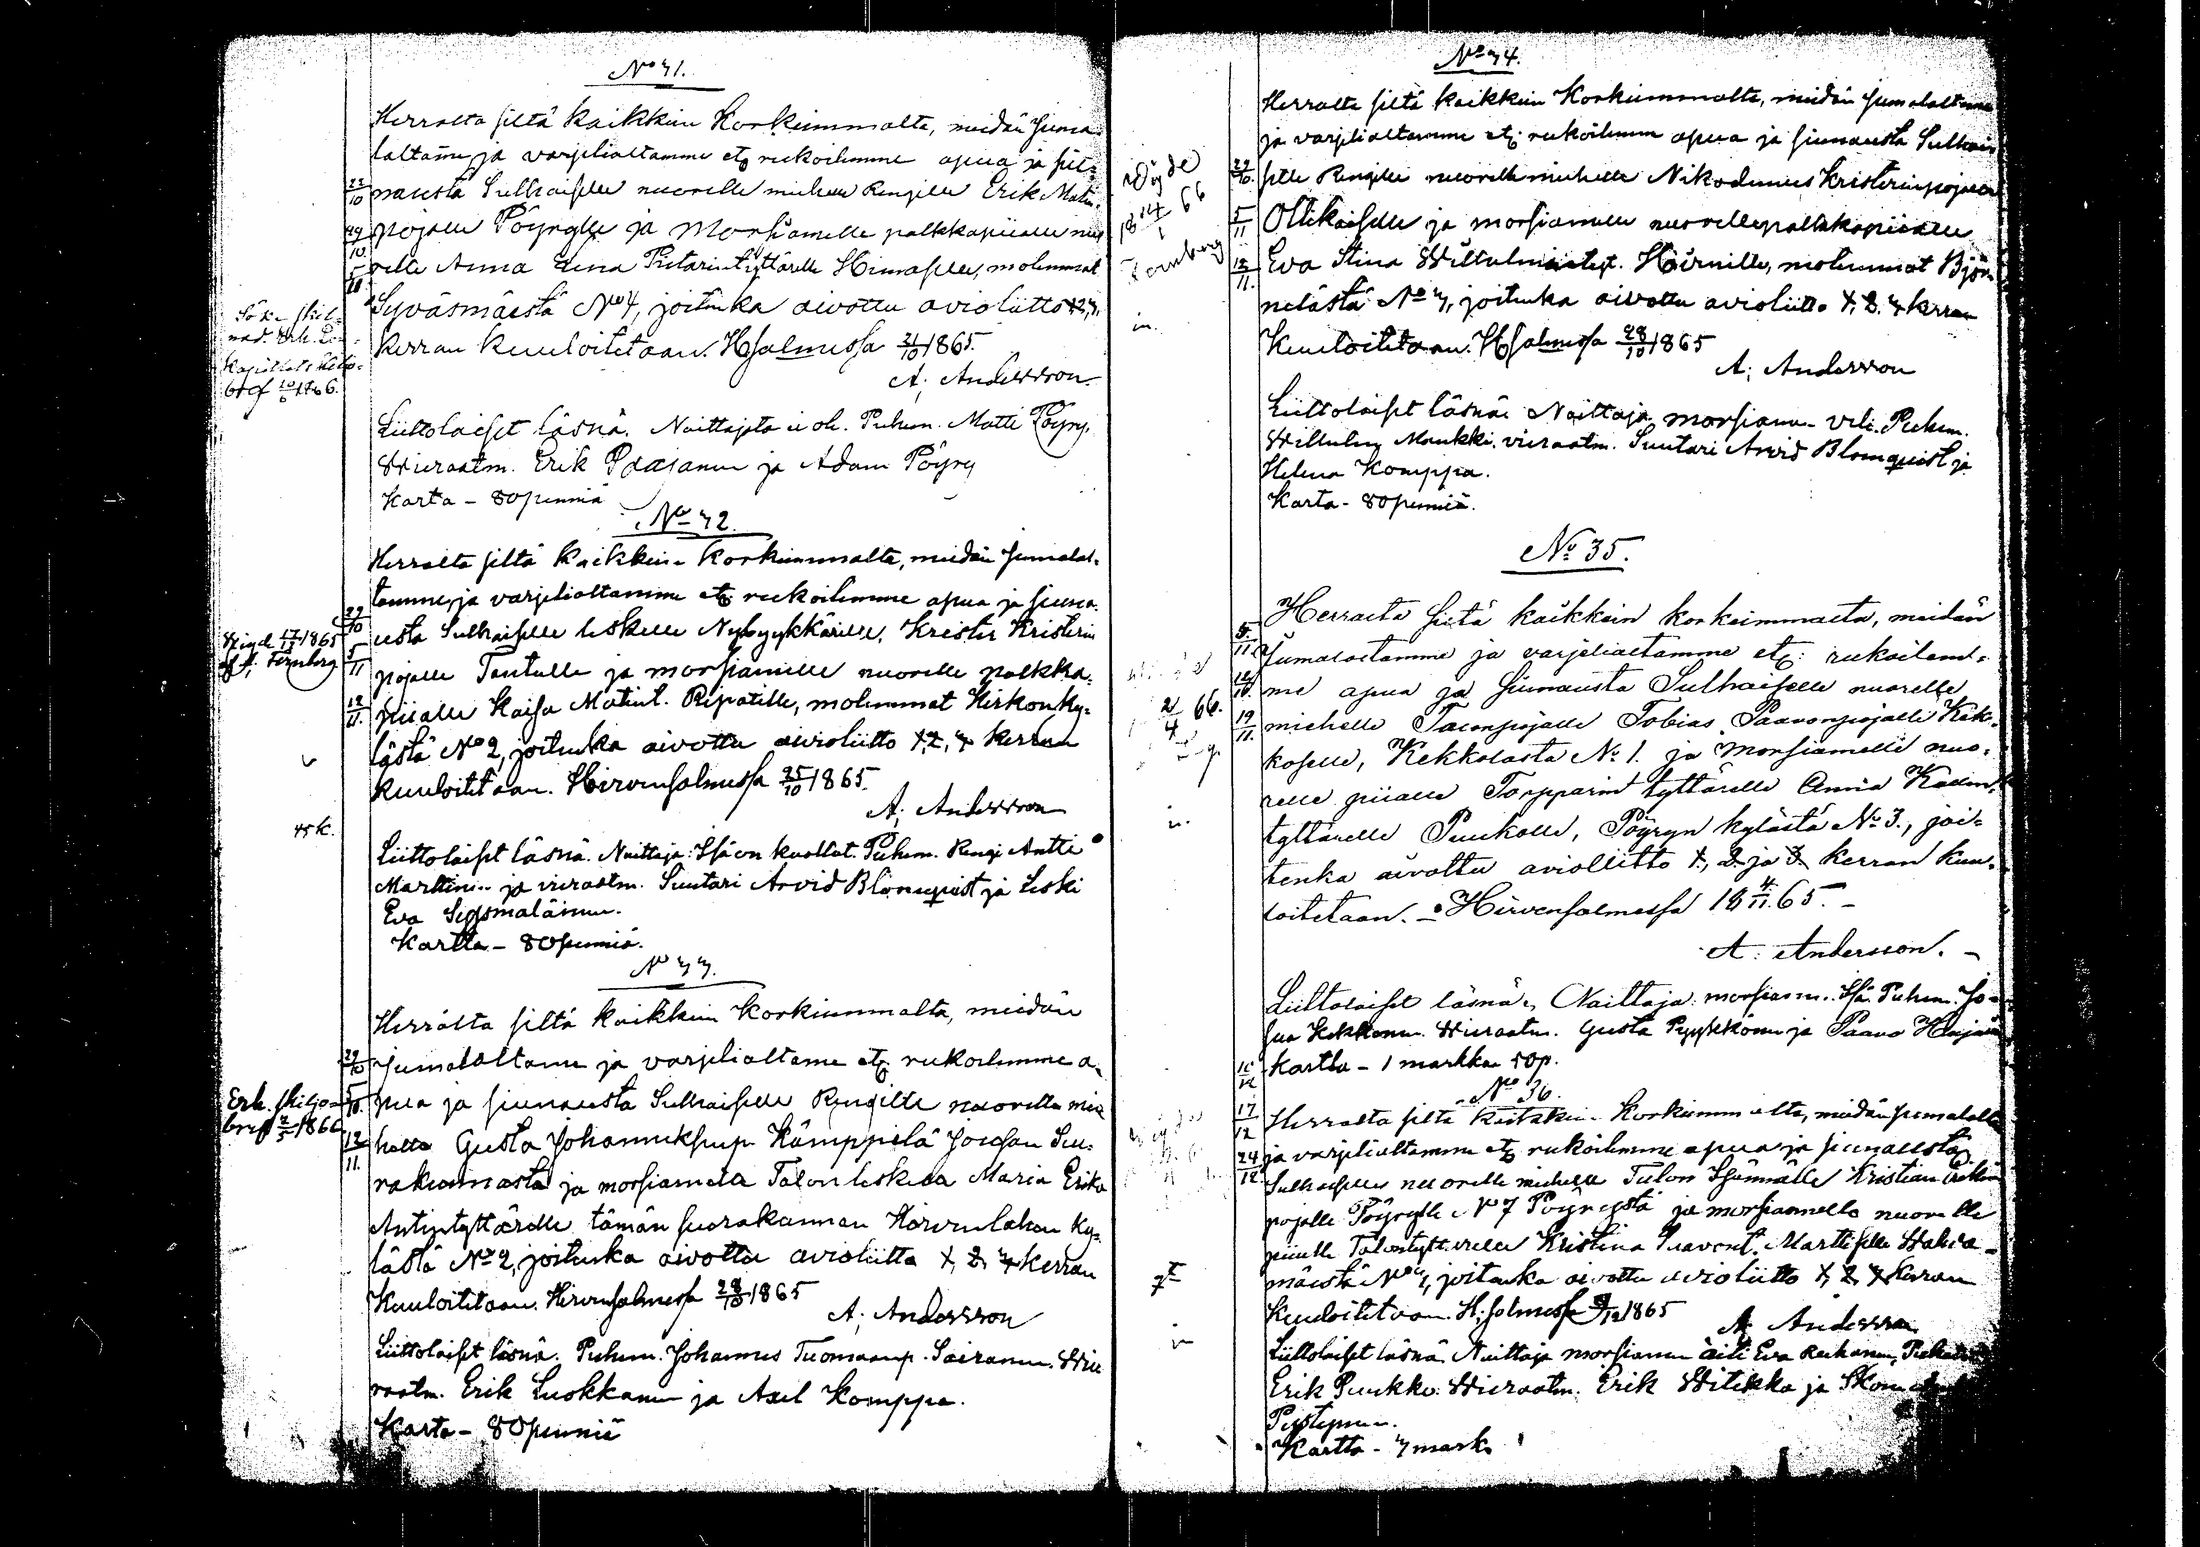 No 31.
Herralta siltä kaikkein korkeimmalta, meidän Juma-
laltamme ja varjelialtamme etc rukoilemme apua ja siu-
22/10 nausta Sulhaiselle nuorelle miehelle Rengille Erik Matin-
29/10 pojalle Pöyrylle ja Morsiamelle palkkapiialle nuo-
5/11 relle Anna Lena Pietarintyttärelle Himaselle, molemmat
Syväsmäestä No 4, joitenka aivottu avioliitto 1, 2, 3,
kerran kuuloitetaan. H.salmessa 21/10 1865.
A; Andersson.
Liittolaiset läsnä. Naittajata ei ole. Puhem. Matti Pöyry.
Wieraatm. Erik Paajanen ja Adam Pöyry
Karta - 80 penniä
bref 10/6 1866.
No 32.
Herralta siltä kaikkein korkeimmalta, meidän Jumalal-
tamme, ja varjelialtamme etc rukoilemme apua ja siuna-
29/10 usta Sulhaiselle leskelle Nybyykkärille, Krister Kristerin
5/11 pojalle Tantulle ja morsiamelle nuorelle palkka-
12/11. piialle Kaisa Matint. Ripatille, molemmat Kirkonky-
lästä No 2, joitenka aivottu avioliitto 1, 2, 3 kerran
kuuloitetaan. Hirvensalmessa 25/10 1865.
A; Andersson
Liittolaiset läsnä. Naittaja: Isä on kuollut. Puhem. Rengi Antti
Marttinen ja vieraatm. Suutari Arvid Blomquist ja Leski
Eva Sigsmaläinen.
Kartta - 80 penniä.
Wigde 17/12 1865
af A; Fernberg
45 k.
No 33.
Herralta siltä kaikkein korkeimmalta, meidän
29/10 Jumalaltame ja varjelialtame etc rukoilemme a-
5/11. pua ja siunausta Sulhaiselle Rengille nuorelle mie
12/11. helle Gusta Johanneksenp. Kämppilä Joutsan Seu-
rakunnasta ja morsiamelle Talon leskelle Maria Erika
Antintyttärelle tämän seurakunnan Hirvenlahen ky-
lästä No 2, joitenka aivottu avioliitto 1, 2, 3 kerran
Kuuloitetaan. Hirvensalmessa 28/10 1865
A; Andersson
Liittolaiset läsnä. Puhem. Johannes Tuomaanp. Sairanen. Wie
raatm. Erik Luokkanen ja Axel Komppa.
Karta - 80 penniä
Erh. skiljo-
bref 2/5 1866
No 34.
Herralta siltä kaikkein korkeimmalta, meidän Jumalaltamme
ja varjelialtamme etc: rukoilemme apua ja siunausta Sulhai-
29/10. selle Rengille nuorelle miehelle Nikodemus Kristerinpojalle
5/11 Ollikaiselle ja morsiamelle nuorelle palkkapiialle
12/11. Eva Stina Willhelmintyt. Hörnille, molemmat Björ-
nilästä No 3, joitenka aivottu avioliitto 1, 2, 3 kerran
kuuloitetaan. H.salmessa 28/10 1865
A; Andersson
Liittolaiset läsnä. Naittaja morsiam. veli. Puhem.
Willhelm Maukki. vieraatm. Suutari Arvid Blomquist ja
Helena Komppa.
Karta - 80 penniä.
Wigde
18 14/1 66
Fernberg
No 35.
Herralta siltä kaikkein korkeimmalta, meidän
5/11. Jumalaltamme ja varjelialtamme etc: rukoilem-
12/11. me apua ja siunausta Sulhaiselle nuorelle
19/11. miehelle Talonpojalle Tobias Paavonpojalle Kek-
koselle, Kekkolasta No 1. ja Morsiamelle nuo-
relle piialle Torpparin tyttärelle Anna Kaarin
tyttärelle Puukolle, Pöyryn kylästä No 3., joi-
tenka aivottu avioliitto 1, 2 ja 3 kerran kuu-
loitetaan. - Hirvensalmessa 18 4/11 65. -
A: Andersson. -
Liittolaiset läsnä, Naittaja: morsiam. Isä. Puhem. Jo-
sua Kekkonen. Wieraatm. Gusta Pyykkönen ja Paavo
Kartta - 1 markka 50 p.
2/4 66.
No 36.
17/12 Herralta siltä kaikkein korkeimmalta, meidän Jumalalta
24/12 ja varjelialtamme etc rukoilemme apua ja siunausta
Sulhaiselle nuorelle miehelle Talon Isännälle Kristian Erikin
pojalle Pöyrylle No 7 Pöyrystä ja morsiamelle nuorelle
piialle Talontyttärelle Kristina Paavont. Marttiselle Wahva-
mäestä No 3, joitenka aivottu avioliitto 1, 2, 3 kerran
kuuloitetaan. H.salmessa 9/12 1865
A; Andersson
Liittolaiset läsnä. Naittaja morsiamen äiti Eva Reikonen, Puhem.
Erik Puukko. Wieraatm. Erik Witikka ja
Kartta - 3 mark.